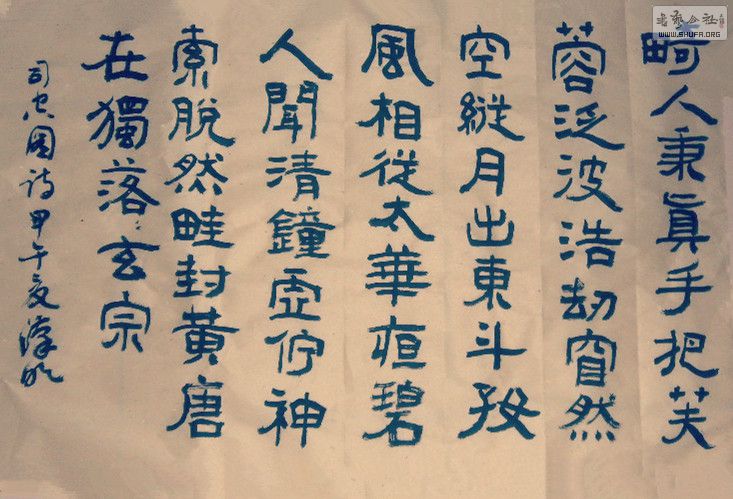 畸人秉眞手把芙
蓉泛波浩劫窅然
空縱月出東斗好
風相從太華夜碧
人聞清鐘虛佇神
索脫然畦封黃唐
在獨落〻玄宗
司空圖詩甲午夏
書藝公社
WWW.SHUFA.ORG